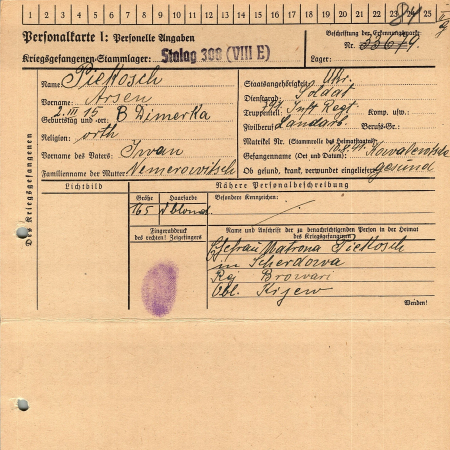 1 2 3 4 5 6 7 8 9 10 11 12 13 14 15 16 17 18 19 20 21 22 23 24 25
Personalkarte I: Personelle Angaben
Kriegsgefangenen-Stammlager: Stalag 308 (VIII E)
Beschriftung der Erkennungsmarke
Nr. 33679.
Lager:
Des Kriegsgefangenen
Name: Piekosch
Vorname: Arsen
Geburtstag und -ort: 2. III 15 B Dimerka
Religion: orth
Vorname des Vaters: Iwan
Familienname der Mutter: Nemerowitsch
Staatsangehörigkeit: Ukr.
Dienstgrad: Soldat
Truppenteil: Inft Regt. Komp. usw.:
Zivilberuf: Landarb. Berufs-Gr.:
Matrikel Nr. (Stammrolle des Heimatstaates):
Gefangennahme (Ort und Datum): 10.8.41.
Ob gesund, krank, verwundet eingeliefert: gesund
Lichtbild
Nähere Personalbeschreibung
Größe Haarfarbe Besondere Kennzeichen:
165 dblond
Fingerabdruck
des rechten! Zeigefingers
Name und Anschrift der zu benachrichtigenden Person in der Heimat
des Kriegsgefangenen
Ehefrau Matrona Piekosch
in Scherdowa
Rej Browari
Obl. Kijew
Wenden!